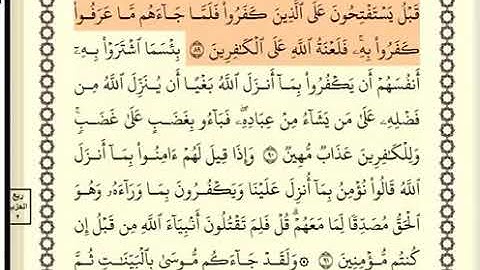 قَبْلُ يَسْتَفْتِحُونَ عَلَى ٱلَّذِينَ كَفَرُوا۟ فَلَمَّا جَآءَهُم مَّا عَرَفُوا۟
كَفَرُوا۟ بِهِۦ ۚ فَلَعْنَةُ ٱللَّهِ عَلَى ٱلْكَـٰفِرِينَ ٨٩ بِئْسَمَا ٱشْتَرَوْا۟ بِهِۦٓ
أَنفُسَهُمْ أَن يَكْفُرُوا۟ بِمَآ أَنزَلَ ٱللَّهُ بَغْيًا أَن يُنَزِّلَ ٱللَّهُ مِن
فَضْلِهِۦ عَلَىٰ مَن يَشَآءُ مِنْ عِبَادِهِۦ ۖ فَبَآءُو بِغَضَبٍ عَلَىٰ غَضَبٍ ۚ
وَلِلْكَـٰفِرِينَ عَذَابٌ مُّهِينٌ ٩٠ وَإِذَا قِيلَ لَهُمْ ءَامِنُوا۟ بِمَآ أَنزَلَ
ٱللَّهُ قَالُوا۟ نُؤْمِنُ بِمَآ أُنزِلَ عَلَيْنَا وَيَكْفُرُونَ بِمَا وَرَآءَهُۥ وَهُوَ
ٱلْحَقُّ مُصَدِّقًا لِّمَا مَعَهُمْ ۗ قُلْ فَلِمَ تَقْتُلُونَ أَنۢبِيَآءَ ٱللَّهِ مِن قَبْلُ إِن
كُنتُم مُّؤْمِنِينَ ٩١ ۞ وَلَقَدْ جَآءَكُم مُّوسَىٰ بِٱلْبَيِّنَـٰتِ ثُمَّ
ربع
الحزب
٢